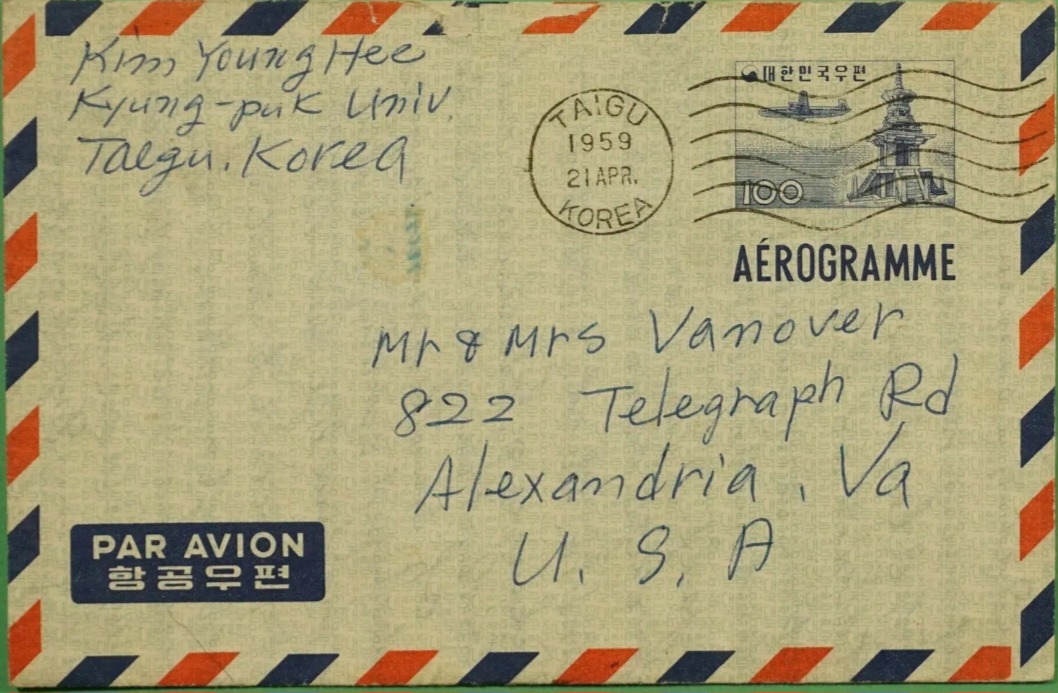 Kim Young Hee
Kyung-puk Univ.
Taegu. Korea
TAIGU
1959
21 APR.
KOREA
대한민국우편
100
AÉROGRAMME
Mr & Mrs Vanover
822 Telegraph Rd
Alexandria, Va
U. S. A
PAR AVION
항공우편